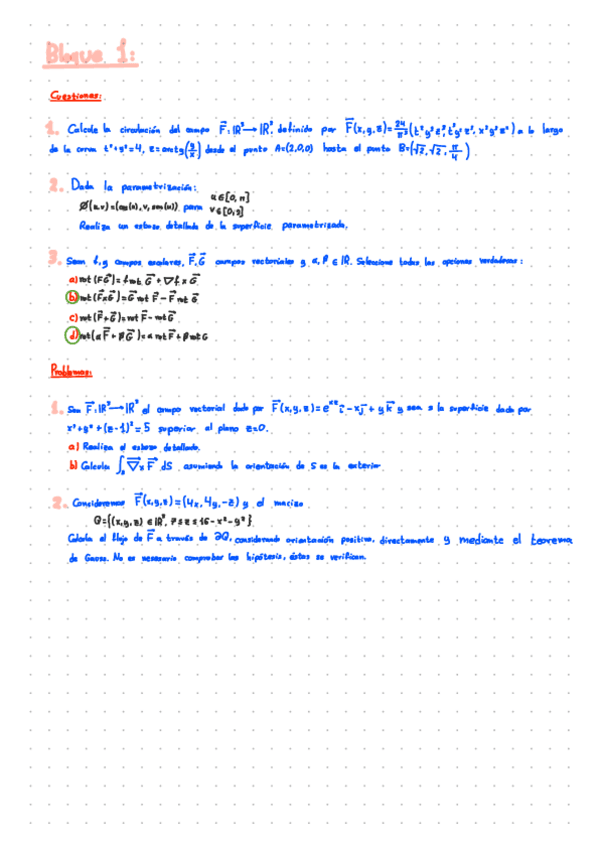 Bloque 1:
Cuestiones:
1. Calcule la circulación del campo F⃗: IR³ → IR³, definido por F⃗(x,y,z) = 24/π³ (t²y³z³, t³y²z³, x³y³z²) a lo largo
de la curva t²+y²=4, z=arctg(y/x) desde el punto A=(2,0,0) hasta el punto B=(√2, √2, π/4).
2. Dada la parametrización:
Ø(u,v)=(cos(u), v, sen(u)) para u∈[0,π] v∈[0,3]
Realiza un esbozo detallado de la superficie parametrizada.
3. Sean f, g campos escalares, F⃗, G⃗ campos vectoriales y α, β ∈ IR. Seleccione todas las opciones verdaderas:
a) rot(fG⃗)=f rot G⃗ + ∇f x G⃗
b) rot(F⃗xG⃗)=G⃗ rot F⃗ - F⃗ rot G⃗
c) rot(F⃗+G⃗)=rot F⃗ - rot G⃗
d) rot(αF⃗ + βG⃗)=α rot F⃗ + β rot G
Problemas:
1. Sea F⃗: IR³ → IR³ el campo vectorial dado por F⃗(x,y,z)=e^xz i⃗ - x j⃗ + y k⃗ y sea s la superficie dada por
x²+y²+(z-1)²=5 superior al plano z=0.
a) Realiza el esbozo detallado.
b) Calcula ∫s ∇⃗x F⃗ dS asumiendo la orientación de S es la exterior.
2. Consideremos F⃗(x,y,z)=(4x, 4y, -z) y el macizo
Q={(x,y,z) ∈ IR³, 7≤z≤16-x²-y²}
Calcula el flujo de F⃗ a través de ∂Q, considerando orientación positiva, directamente y mediante el teorema
de Gauss. No es necesario comprobar las hipótesis, éstas se verifican.